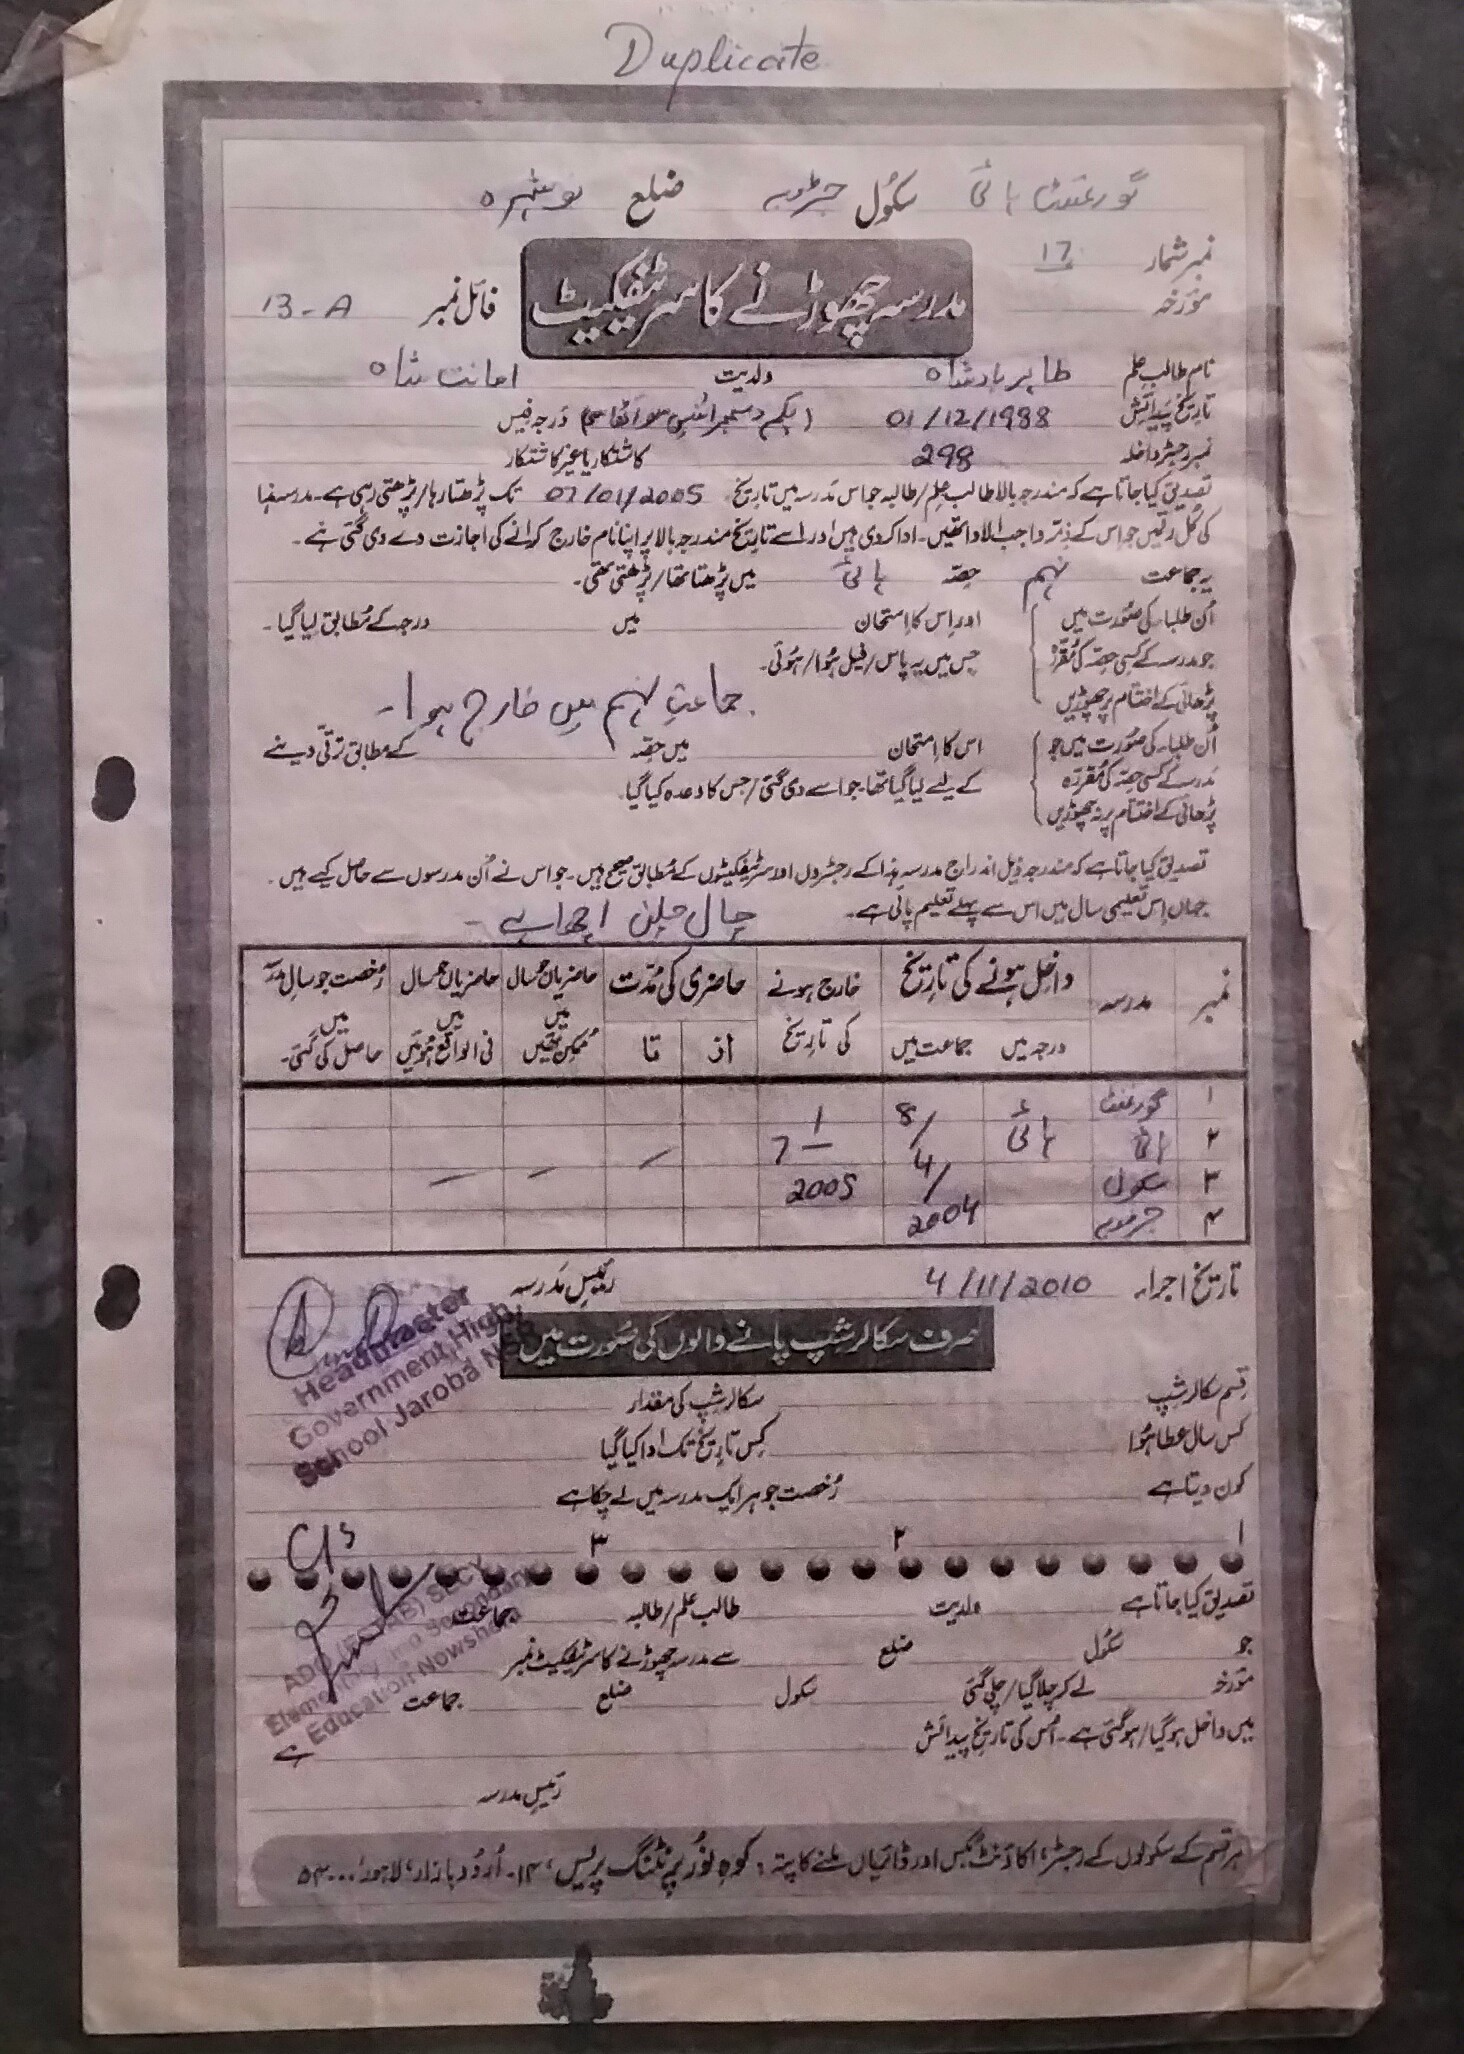 Duplicate
گورنمنٹ ہائی سکول جڑوبہ ضلع نوشہرہ
نمبر شمار 17
مورخہ
مدرسہ چھوڑنے کا سرٹیفکیٹ
فائل نمبر 13-A
نام طالب علم طاہر بادشاہ ولدیت امانت شاہ
تاریخ پیدائش 01/12/1988 (یکم دسمبر انیس سو اٹھاسی) درجہ فیس
نمبر رجسٹر داخلہ 298 کاشتکار یا غیر کاشتکار
تصدیق کیا جاتا ہے کہ مندرجہ بالا طالب علم/طالبہ جو اس مدرسہ میں تاریخ 07/01/2005 تک پڑھتا رہا/پڑھتی رہی ہے۔ مدرسہ ہذا
کی کل رقمیں جو اس کے ذمہ واجب الادا تھیں۔ ادا کر دی ہیں اور اسے تاریخ مندرجہ بالا پر اپنا نام خارج کرانے کی اجازت دے دی گئی ہے۔
یہ جماعت نہم حصہ ہائی میں پڑھتا تھا/پڑھتی تھی۔
اُن طلباء کی صورت میں اور اس کا امتحان میں درجہ کے مطابق لیا گیا۔
جو مدرسہ کے کسی حصہ کی مقررہ جس میں یہ پاس/فیل ہوا/ہوئی۔
پڑھائی کے اختتام پر چھوڑیں
جماعت نہم میں خارج ہوا۔
اُن طلباء کی صورت میں جو اس کا امتحان میں حصہ کے مطابق ترقی دینے
مدرسہ کے کسی حصہ کی مقررہ کے لیے لیا گیا تھا جو اسے دی گئی/جس کا وعدہ کیا گیا۔
پڑھائی کے اختتام پر نہ چھوڑیں
تصدیق کیا جاتا ہے کہ مندرجہ ذیل اندراج مدرسہ ہذا کے رجسٹروں اور سرٹیفکیٹوں کے مطابق صحیح ہیں۔ جو اس نے اُن مدرسوں سے حاصل کیے ہیں۔
جہاں اس تعلیمی سال میں اس سے پہلے تعلیم پائی ہے۔
چال چلن اچھا ہے۔
نمبر مدرسہ داخل ہونے کی تاریخ خارج ہونے کی تاریخ حاضری کی مدت حاضریاں جو سال میں ممکن تھیں حاضریاں جو سال میں فی الواقع ہوئیں رخصت جو سال میں حاصل کی گئی۔
درجہ میں جماعت میں از تا
۱ گورنمنٹ 8/ 1
۲ ہائی ہائی 4/ 7 —
۳ سکول 2005
۴ جڑوبہ 2004
تاریخ اجراء 4/11/2010 رئیس مدرسہ
Headmaster
Government High
School Jaroba
صرف سکالرشپ پانے والوں کی صورت میں
قسم سکالرشپ سکالرشپ کی مقدار
کس سال عطا ہوا کس تاریخ تک ادا کیا گیا
کون دیتا ہے رخصت جو ہر ایک مدرسہ میں لے چکا ہے
۱ ۲ ۳
تصدیق کیا جاتا ہے ولدیت طالب علم/طالبہ جماعت
جو سکول ضلع سے مدرسہ چھوڑنے کا سرٹیفکیٹ نمبر
مورخہ لے کر چلا گیا/چلی گئی سکول ضلع جماعت
میں داخل ہو گیا/ہو گئی ہے۔ اس کی تاریخ پیدائش ہے
Elementary Secondary
Education Nowshera
رئیس مدرسہ
ہر قسم کے سکولوں کے رجسٹر، اکاؤنٹ بکس اور ڈائریاں ملنے کا پتہ: کوہ نور پرنٹنگ پریس، ۱۴۔ اُردو بازار، لاہور۔۔۔۵۴